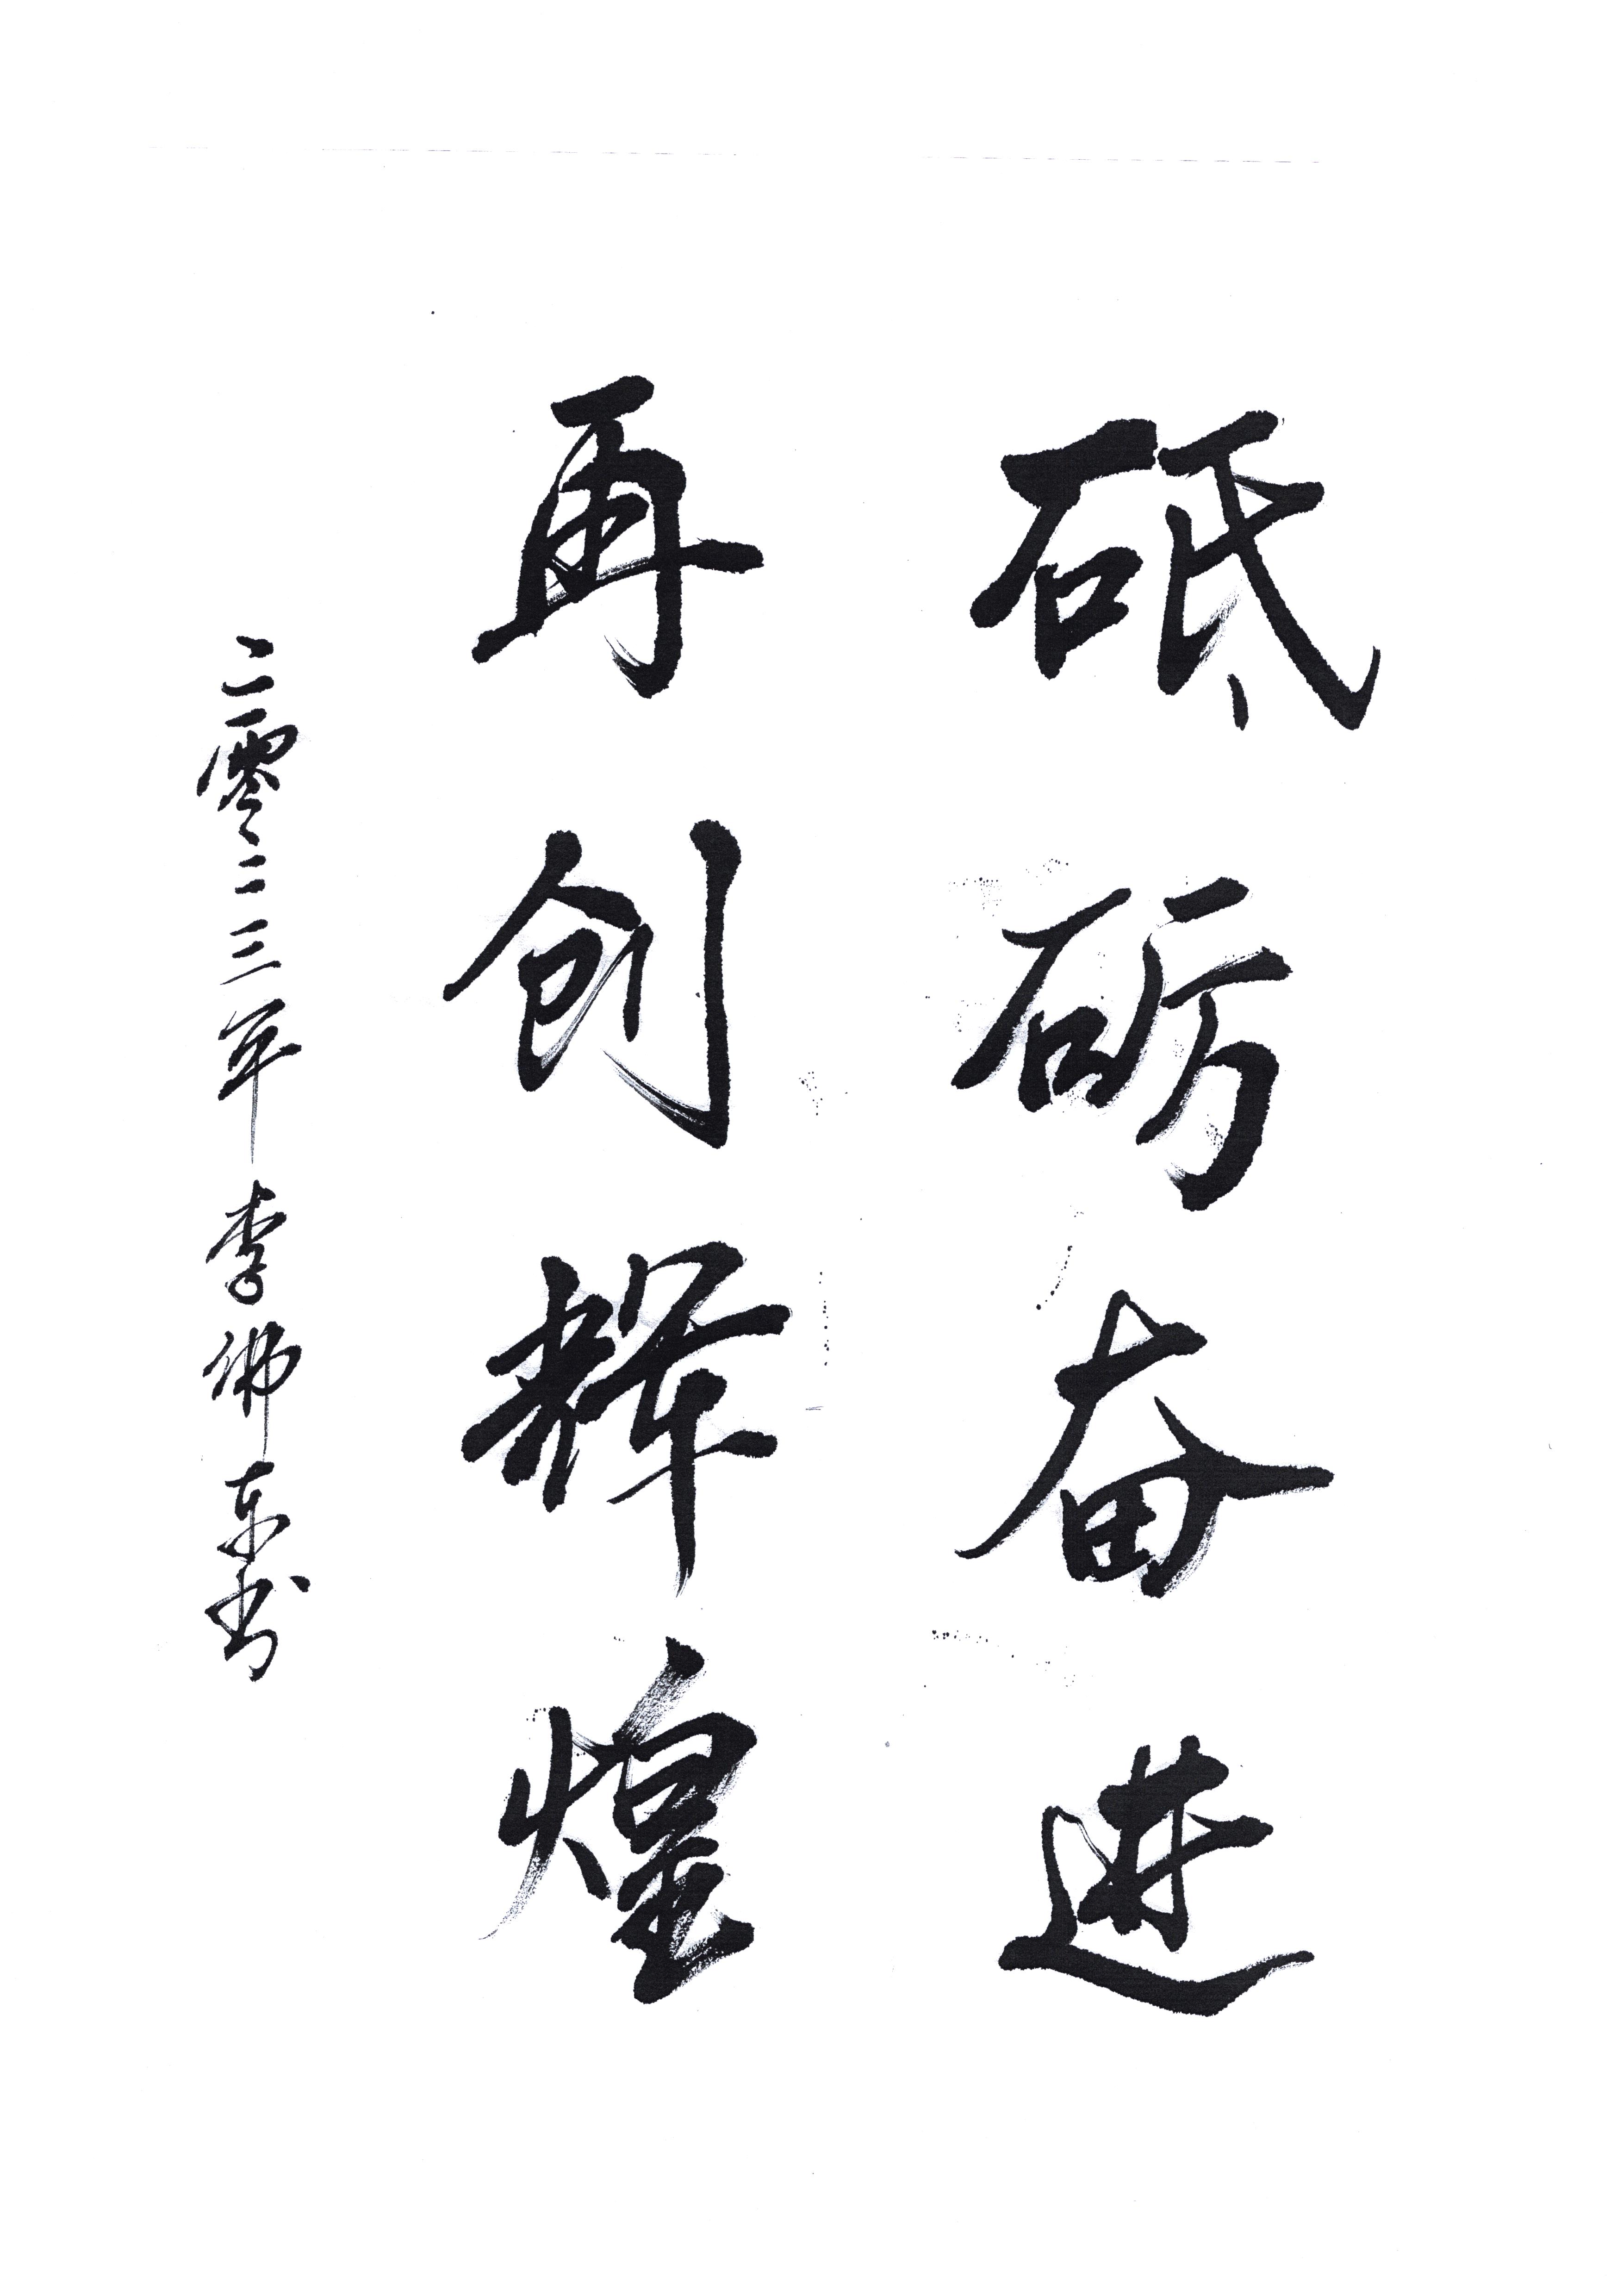 砥砺奋进
再创辉煌
二零二三年李佛东书